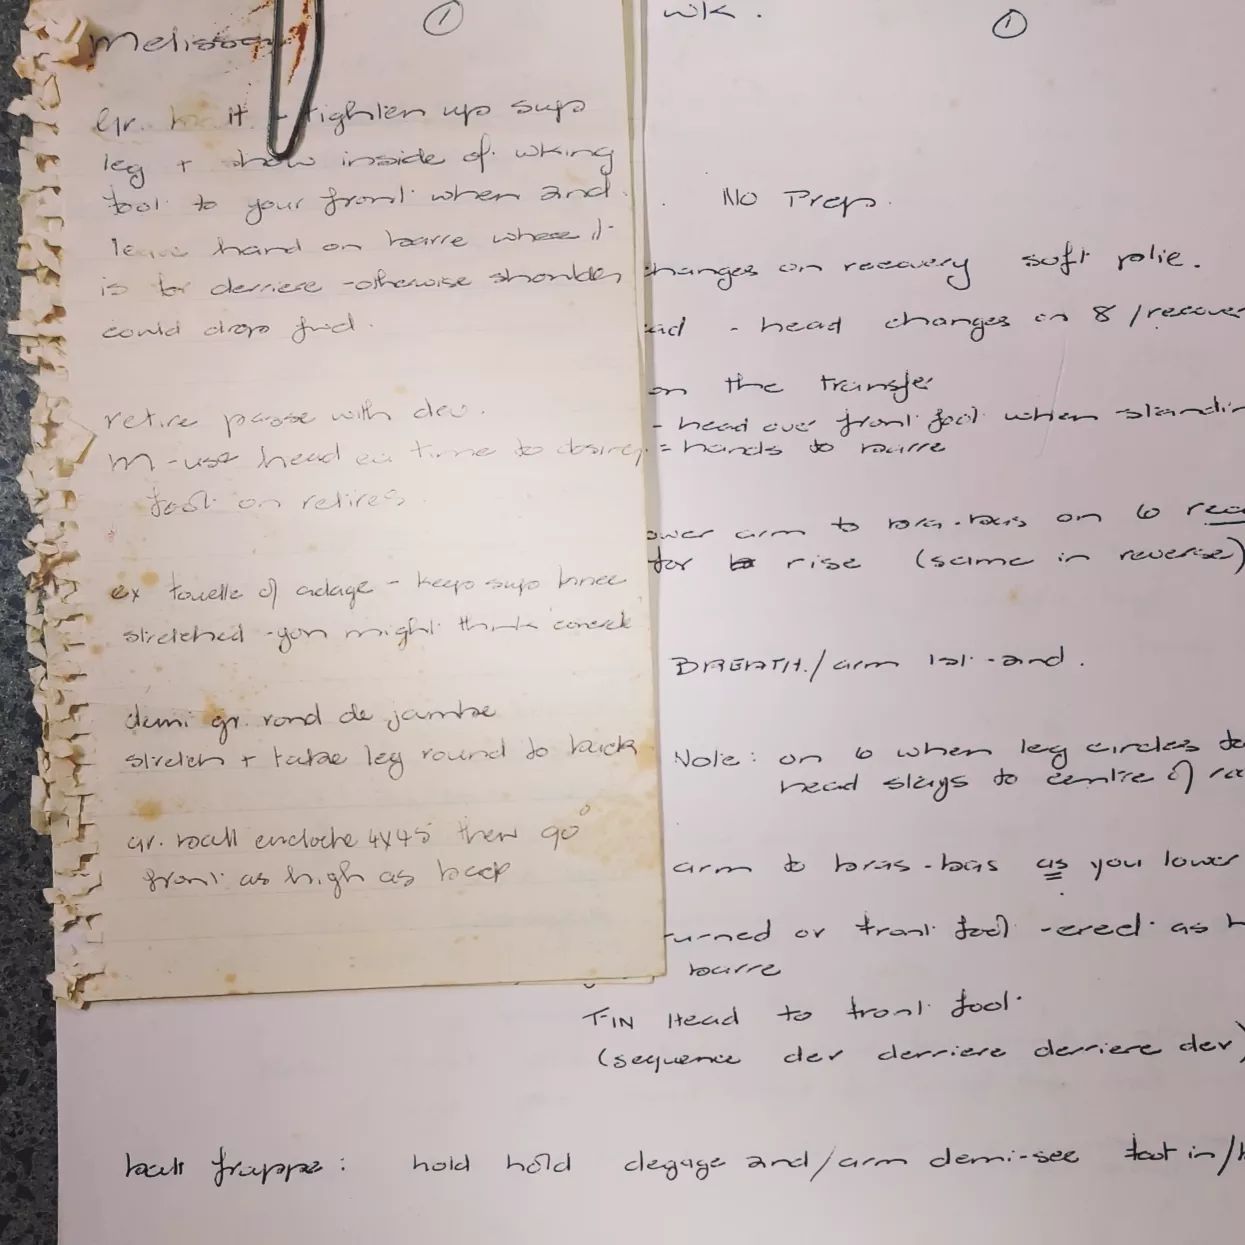 Melissa
1
Gr. it - tighten up sup
leg + show inside of wking
foot to your front when 2nd
leave hand on barre where it
is for derriere - otherwise shoulder
could drop fwd.
retire passe with dev.
M - use head ea time to
foot on retires
ex touelle of adage - keep sup knee
stretched - you might think
demi gr. rond de jambe
stretch + take leg round to back
gr. batt encloche 4x45 then 90°
front as high as back
wk.
1
No Prep.
changes on recovery soft plie.
- head changes on 8 / recover
on the transfer
- head over front foot when standin
= hands to barre
ower arm to bra-bas on 6
for rise (same in reverse)
BREATH/arm 1st - and.
Note: on 6 when leg circles to
head stays to centre of
arm to bras-bas as you lower
turned or front foot - erect as
barre
FIN Head to front foot
(sequence dev derriere derriere dev)
batt frappe: hold hold degage and/arm demi-sec foot in/